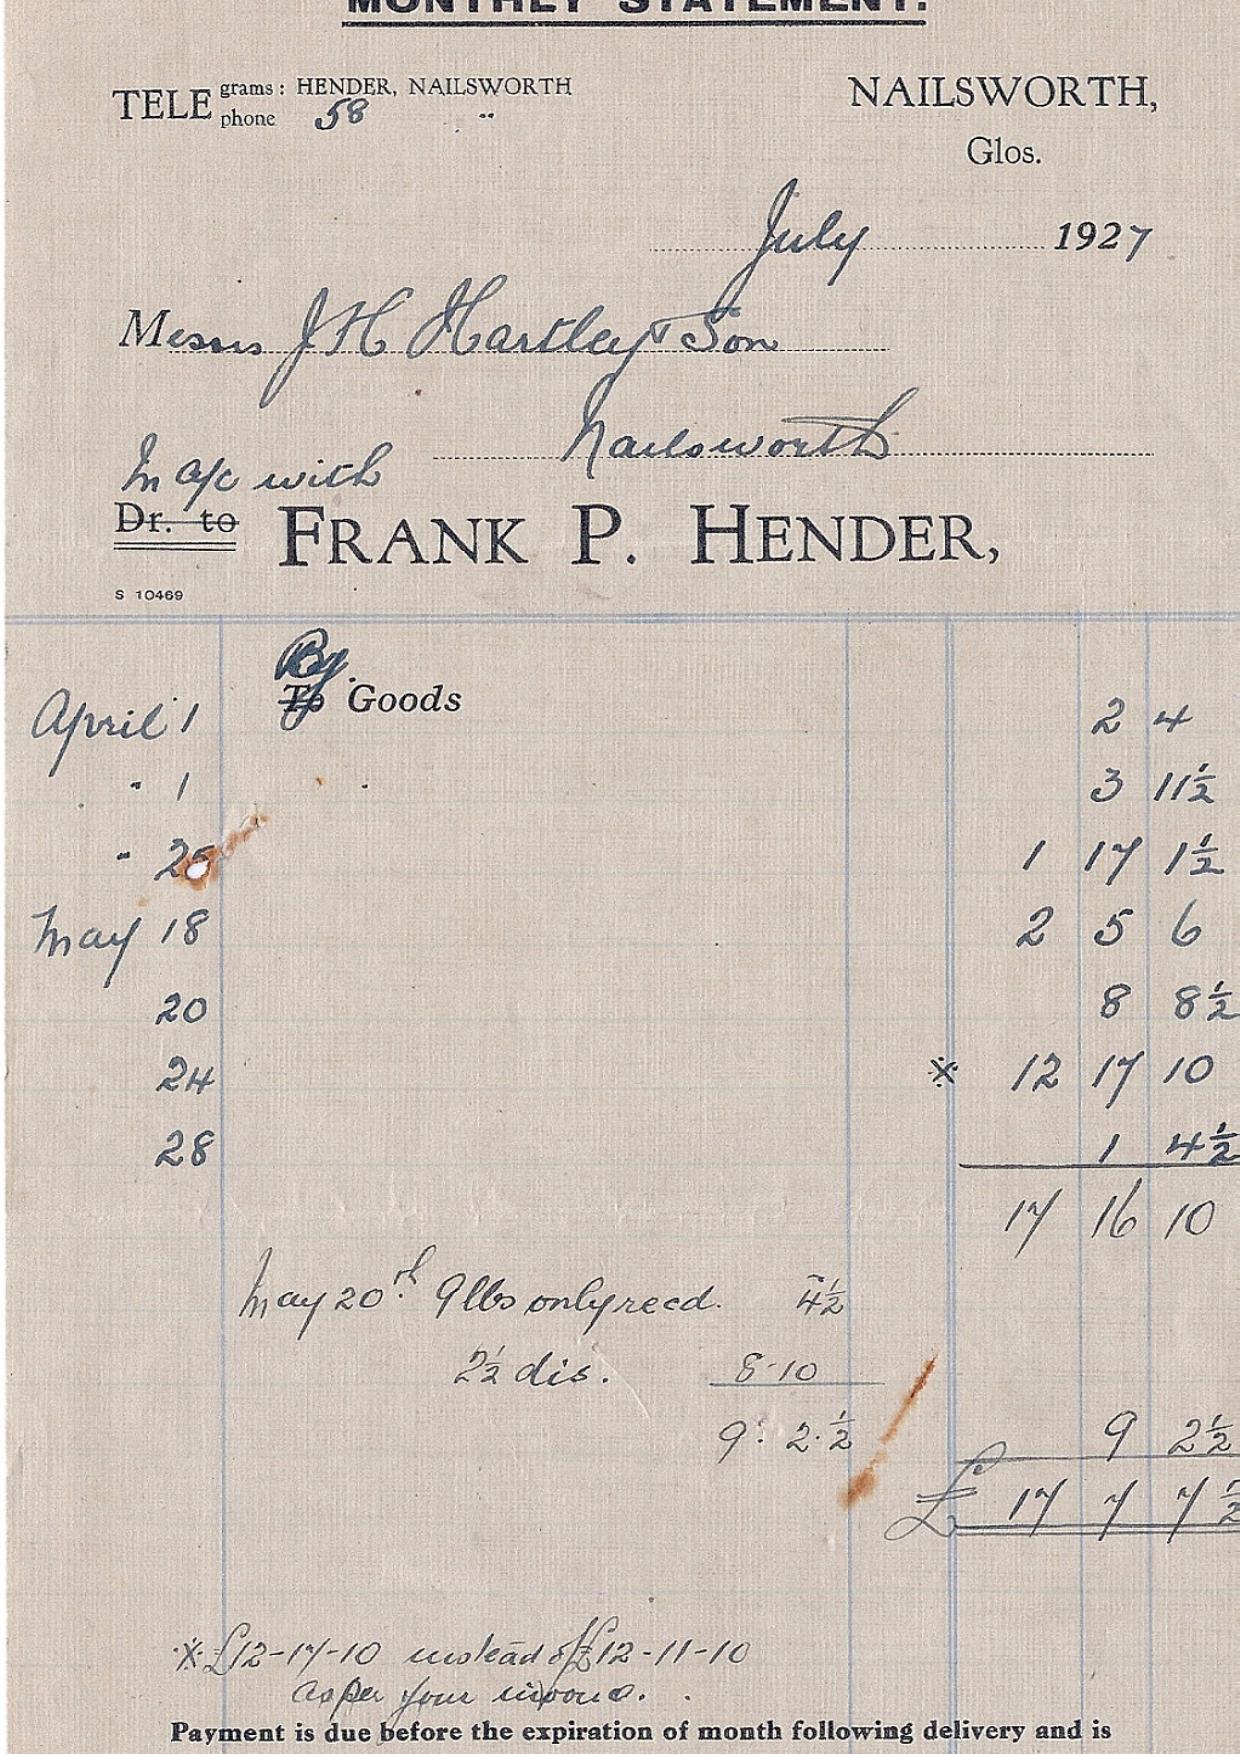 MONTHLY STATEMENT.
TELE grams: HENDER, NAILSWORTH
phone 58 "
NAILSWORTH,
Glos.
July 1927
Messrs J H Hartley & Son
Nailsworth
In a/c with
Dr. to FRANK P. HENDER,
S 10469
By
To Goods
April 1 2 4
" 1 3 11½
" 25 1 17 1½
May 18 2 5 6
20 8 8½
24 ※ 12 17 10
28 1 4½
17 16 10
May 20th 9lbs only recd. 4½
2½ dis. 8·10
9: 2·½ 9 2½
£ 17 7 7½
※ £12-17-10 instead of £12-11-10
as per your invoice.
Payment is due before the expiration of month following delivery and is